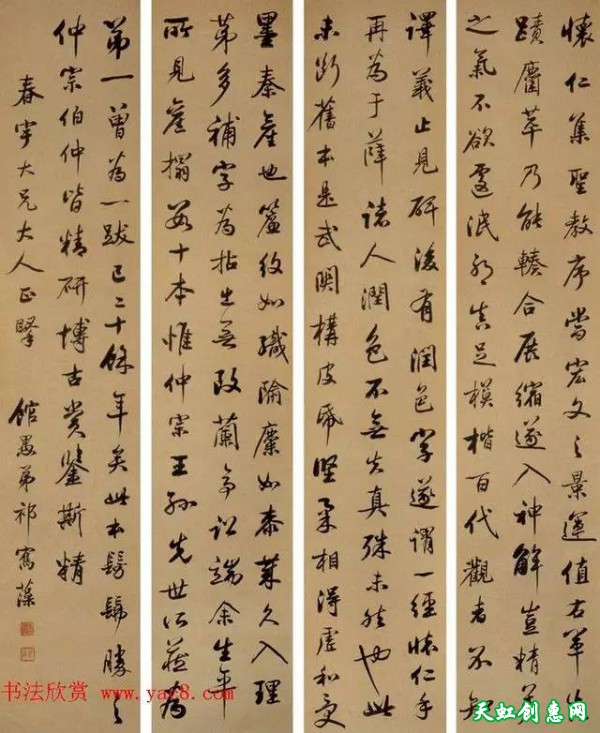 懷仁集聖教序當宏文之景運值右軍真
蹟麕萃乃能輳合展縮遂入神解豈精英
之氣不欲遽泯耶真足模楷百代觀者不知
譯義止見碑後有潤色字遂謂一經懷仁手
再為于薛諸人潤色不無失真殊未然也此
未斷舊本是武關構皮紙堅柔相得虛和受
墨秦產也簾紋如織隃麋如泰葉久入理
第多補字為拈出無改蘭亭訟端余生平
所見舊搨百十本惟仲宗王孫先世所藏為
第一曾為一跋已二十餘年矣此本髣髴勝之
仲宗伯仲皆精研博古賞鑒斯精
春宇大兄大人正腕
館愚弟祁寯藻
书法欣赏 www.yac8.com
天虹创惠网